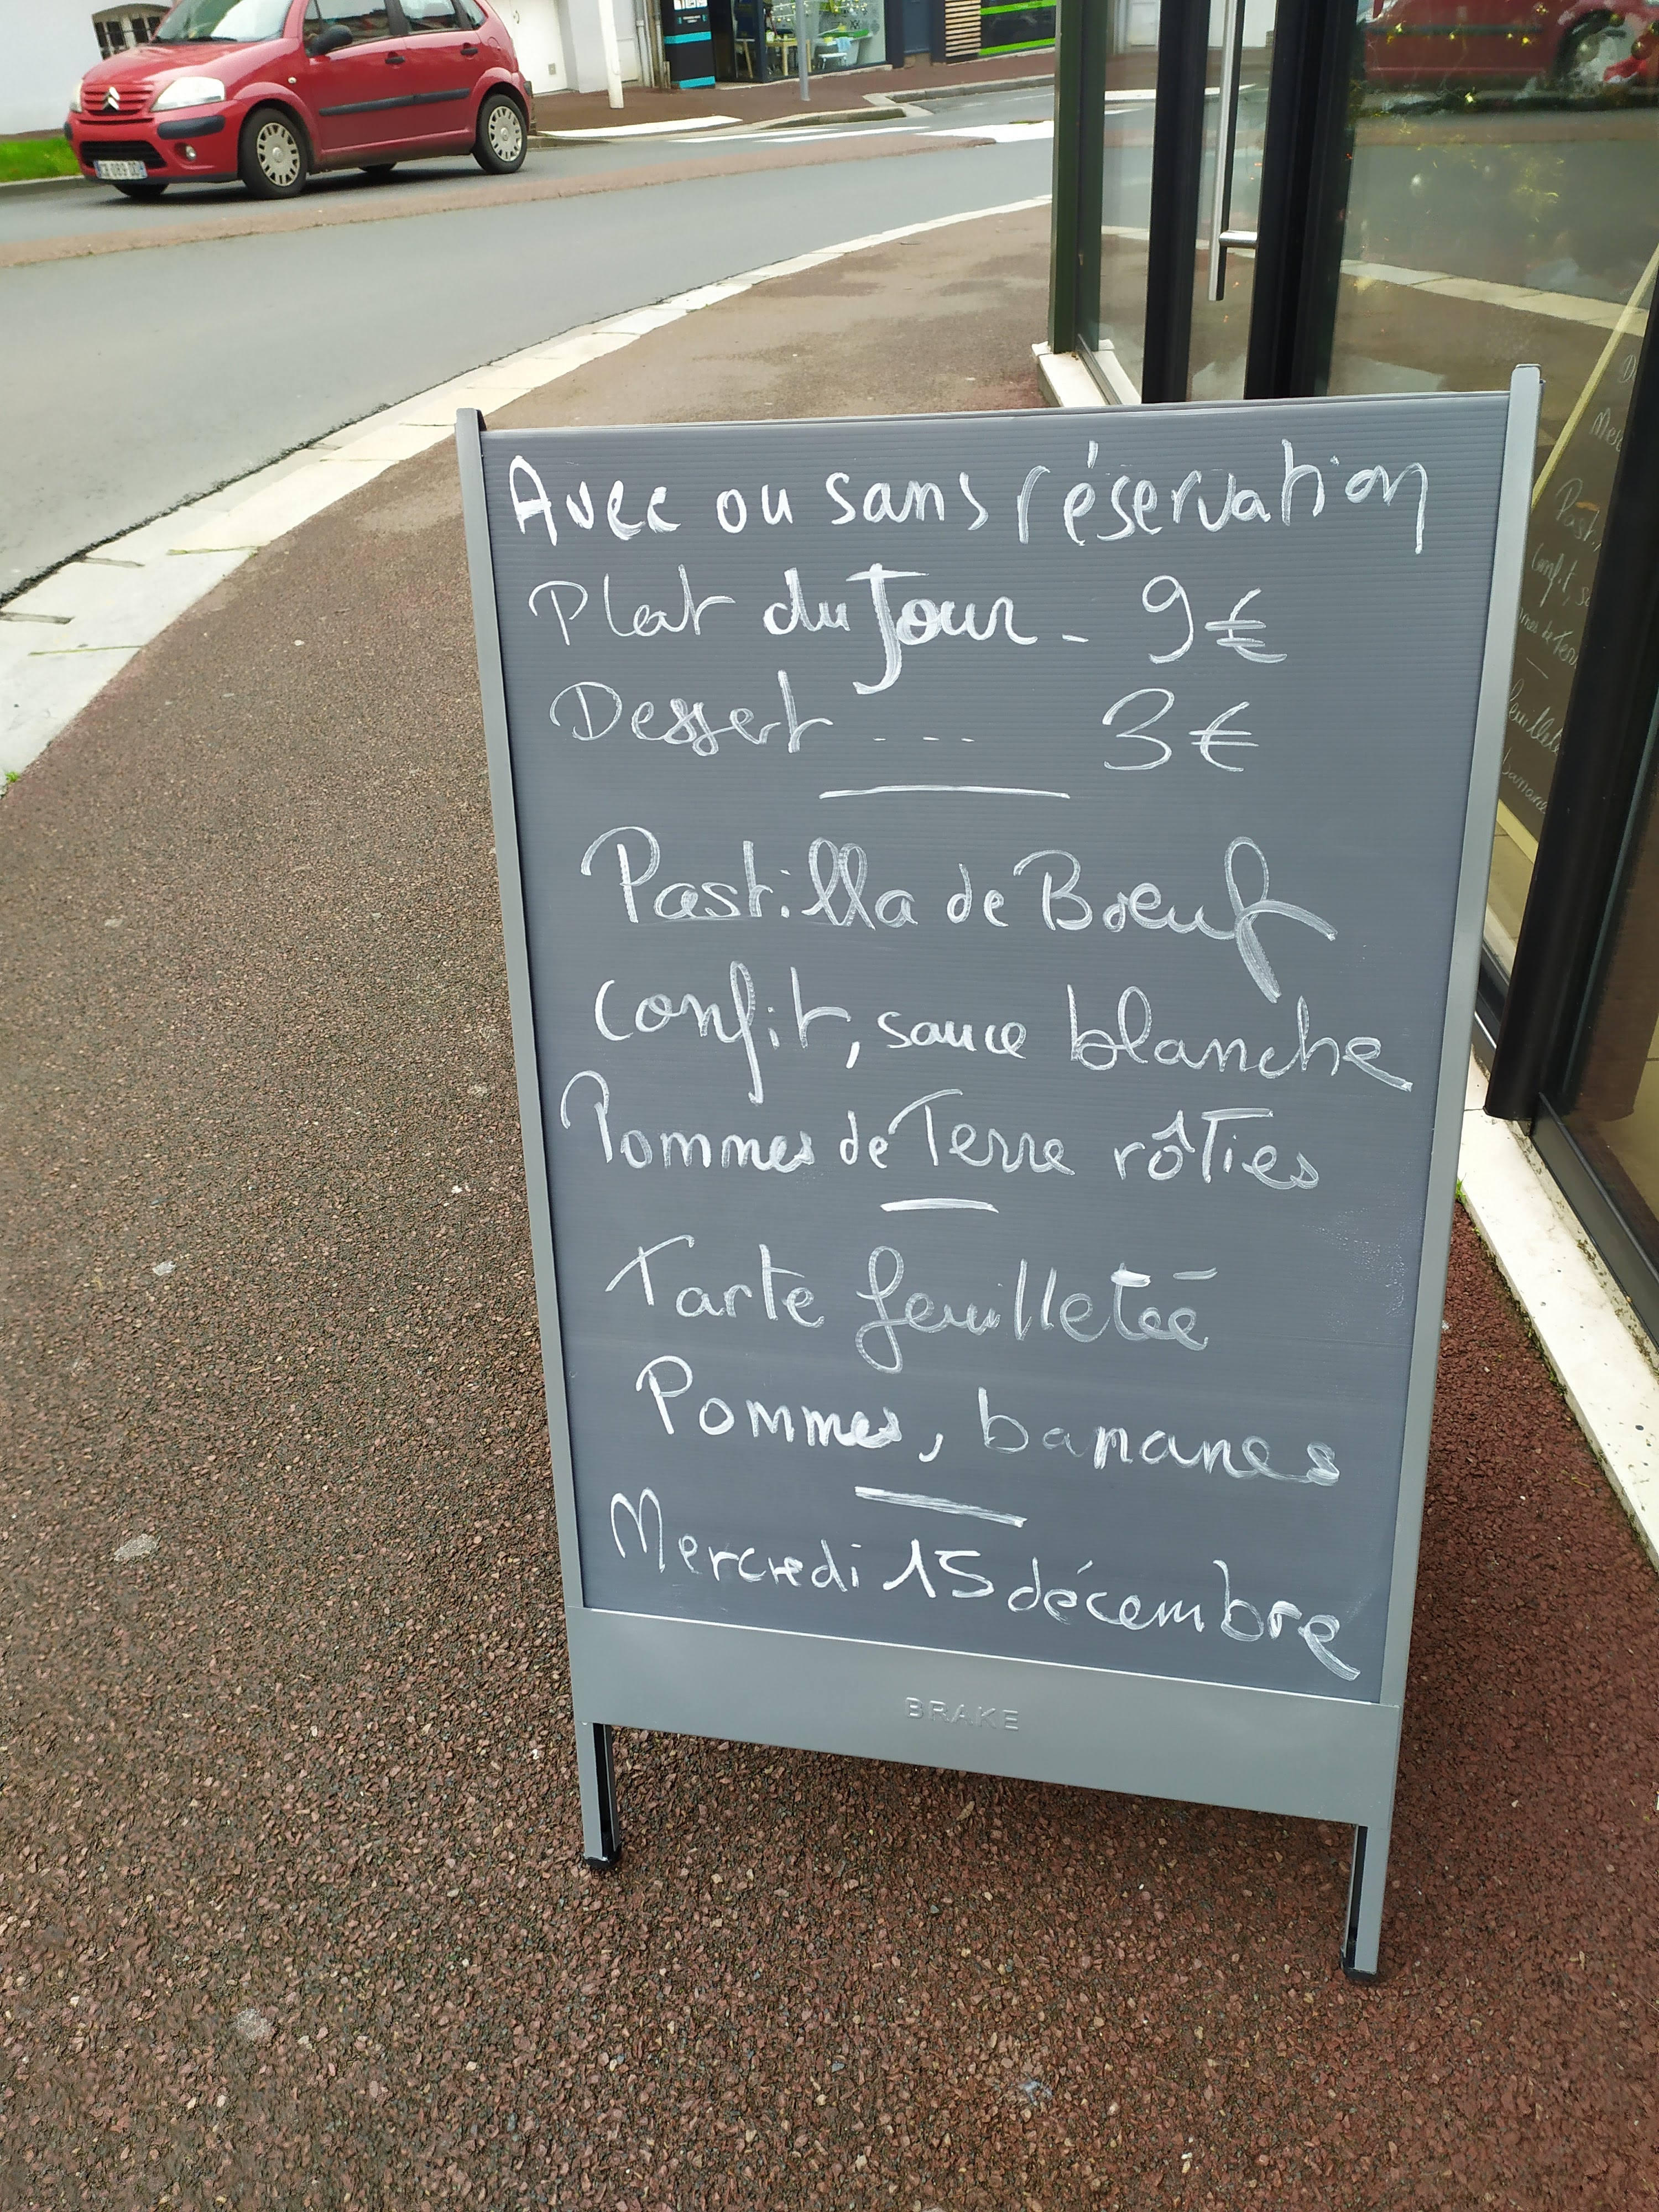 Avec ou sans réservation
Plat du Jour - 9€
Dessert .... 3€
Pastilla de Bœuf
confit, sauce blanche
Pommes de Terre rôties
Tarte feuilletée
Pommes, bananes
Mercredi 15 décembre
BRAKE